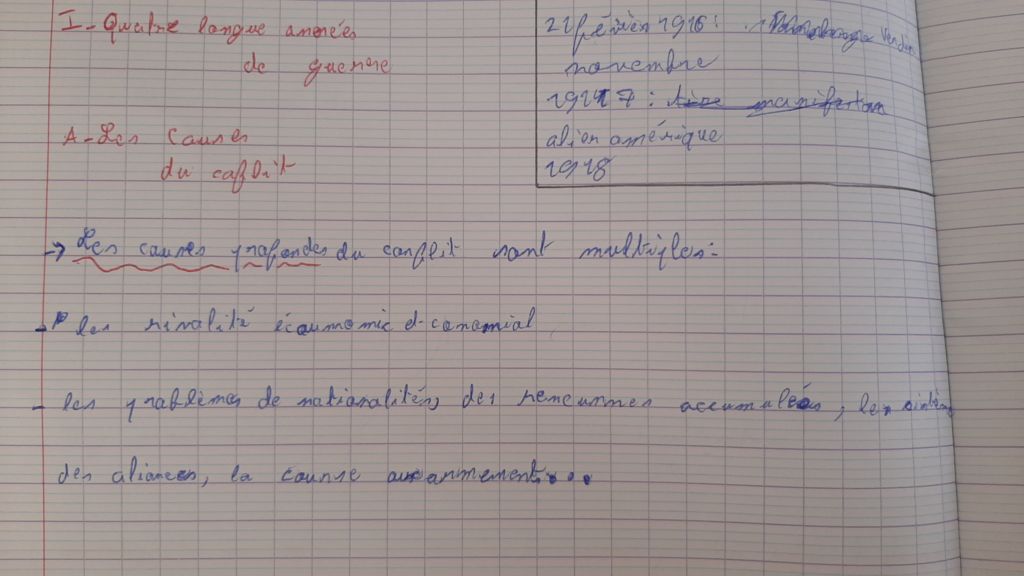 I-Quatre longue années
de guerre
A-Les causes
du conflit
21 février 1916: Verdun
novembre
1917: manifestation
alion amérique
1918
→ Les causes profondes du conflit sont multiples:
- les rivalité écounomic et conomial
- les problèmes de nationalités, des rencunnes accumulées, les
des aliances, la course au armement...